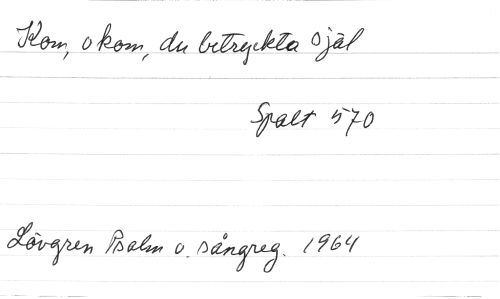 Kom, o kom, du betryckta själ
Spalt 570
Lövgren Psalm o. sångreg. 1964